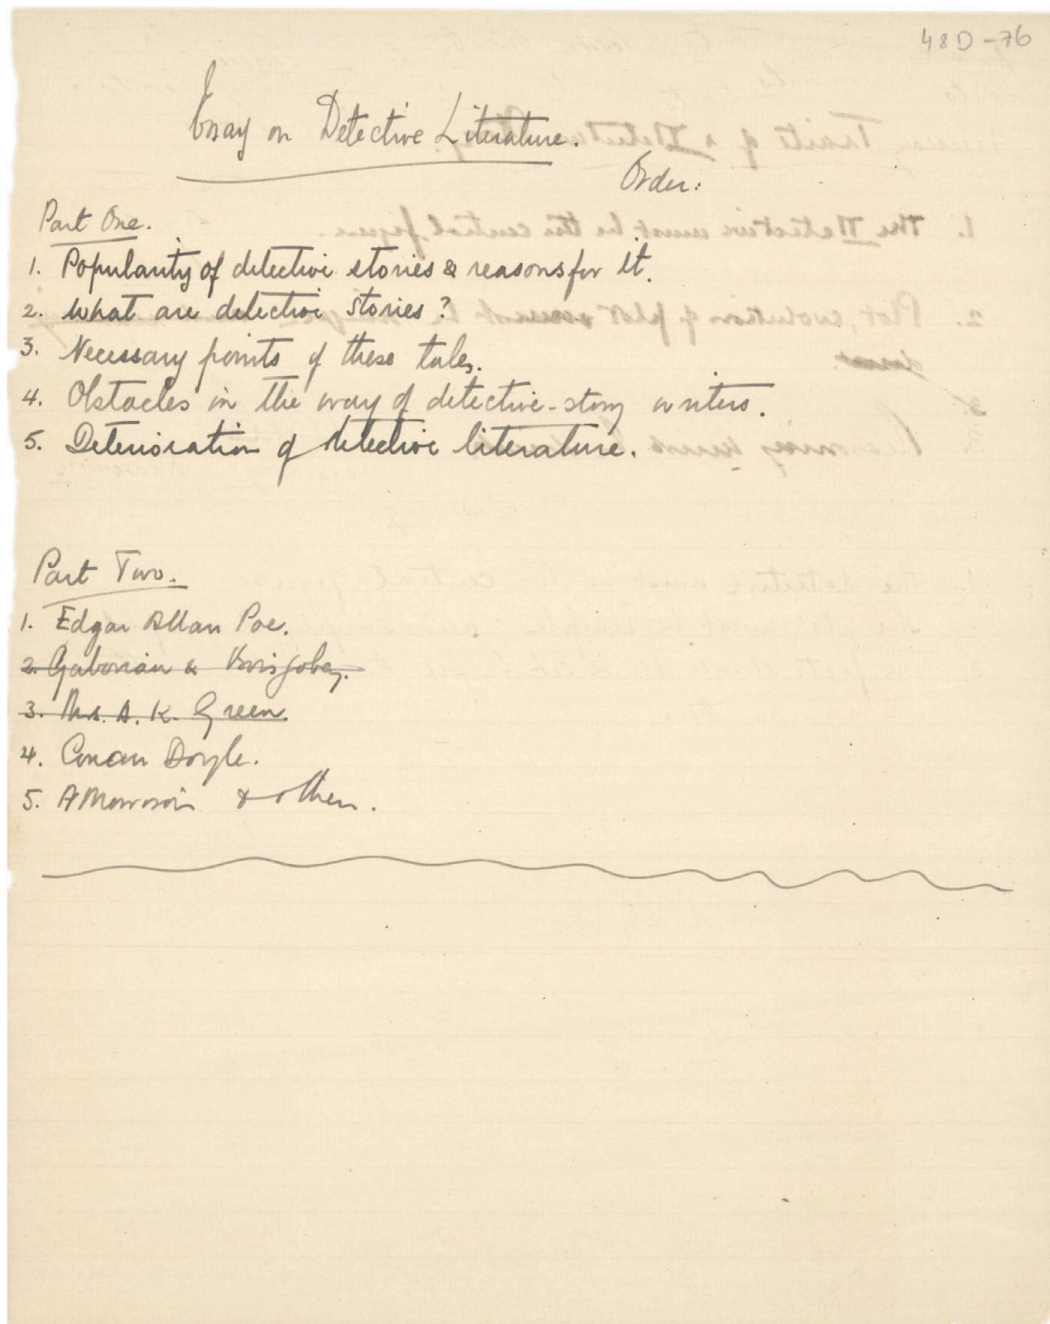 48D-76
Essay on Detective Literature.
Order:
Part One.
1. Popularity of detective stories & reasons for it.
2. What are detective stories?
3. Necessary points of these tales.
4. Obstacles in the way of detective-story writers.
5. Deterioration of detective literature.
Part Two.
1. Edgar Allan Poe.
2. Gaboriau & Boisgobey.
3. Mrs. A. K. Green.
4. Conan Doyle.
5. A Morrison & others.